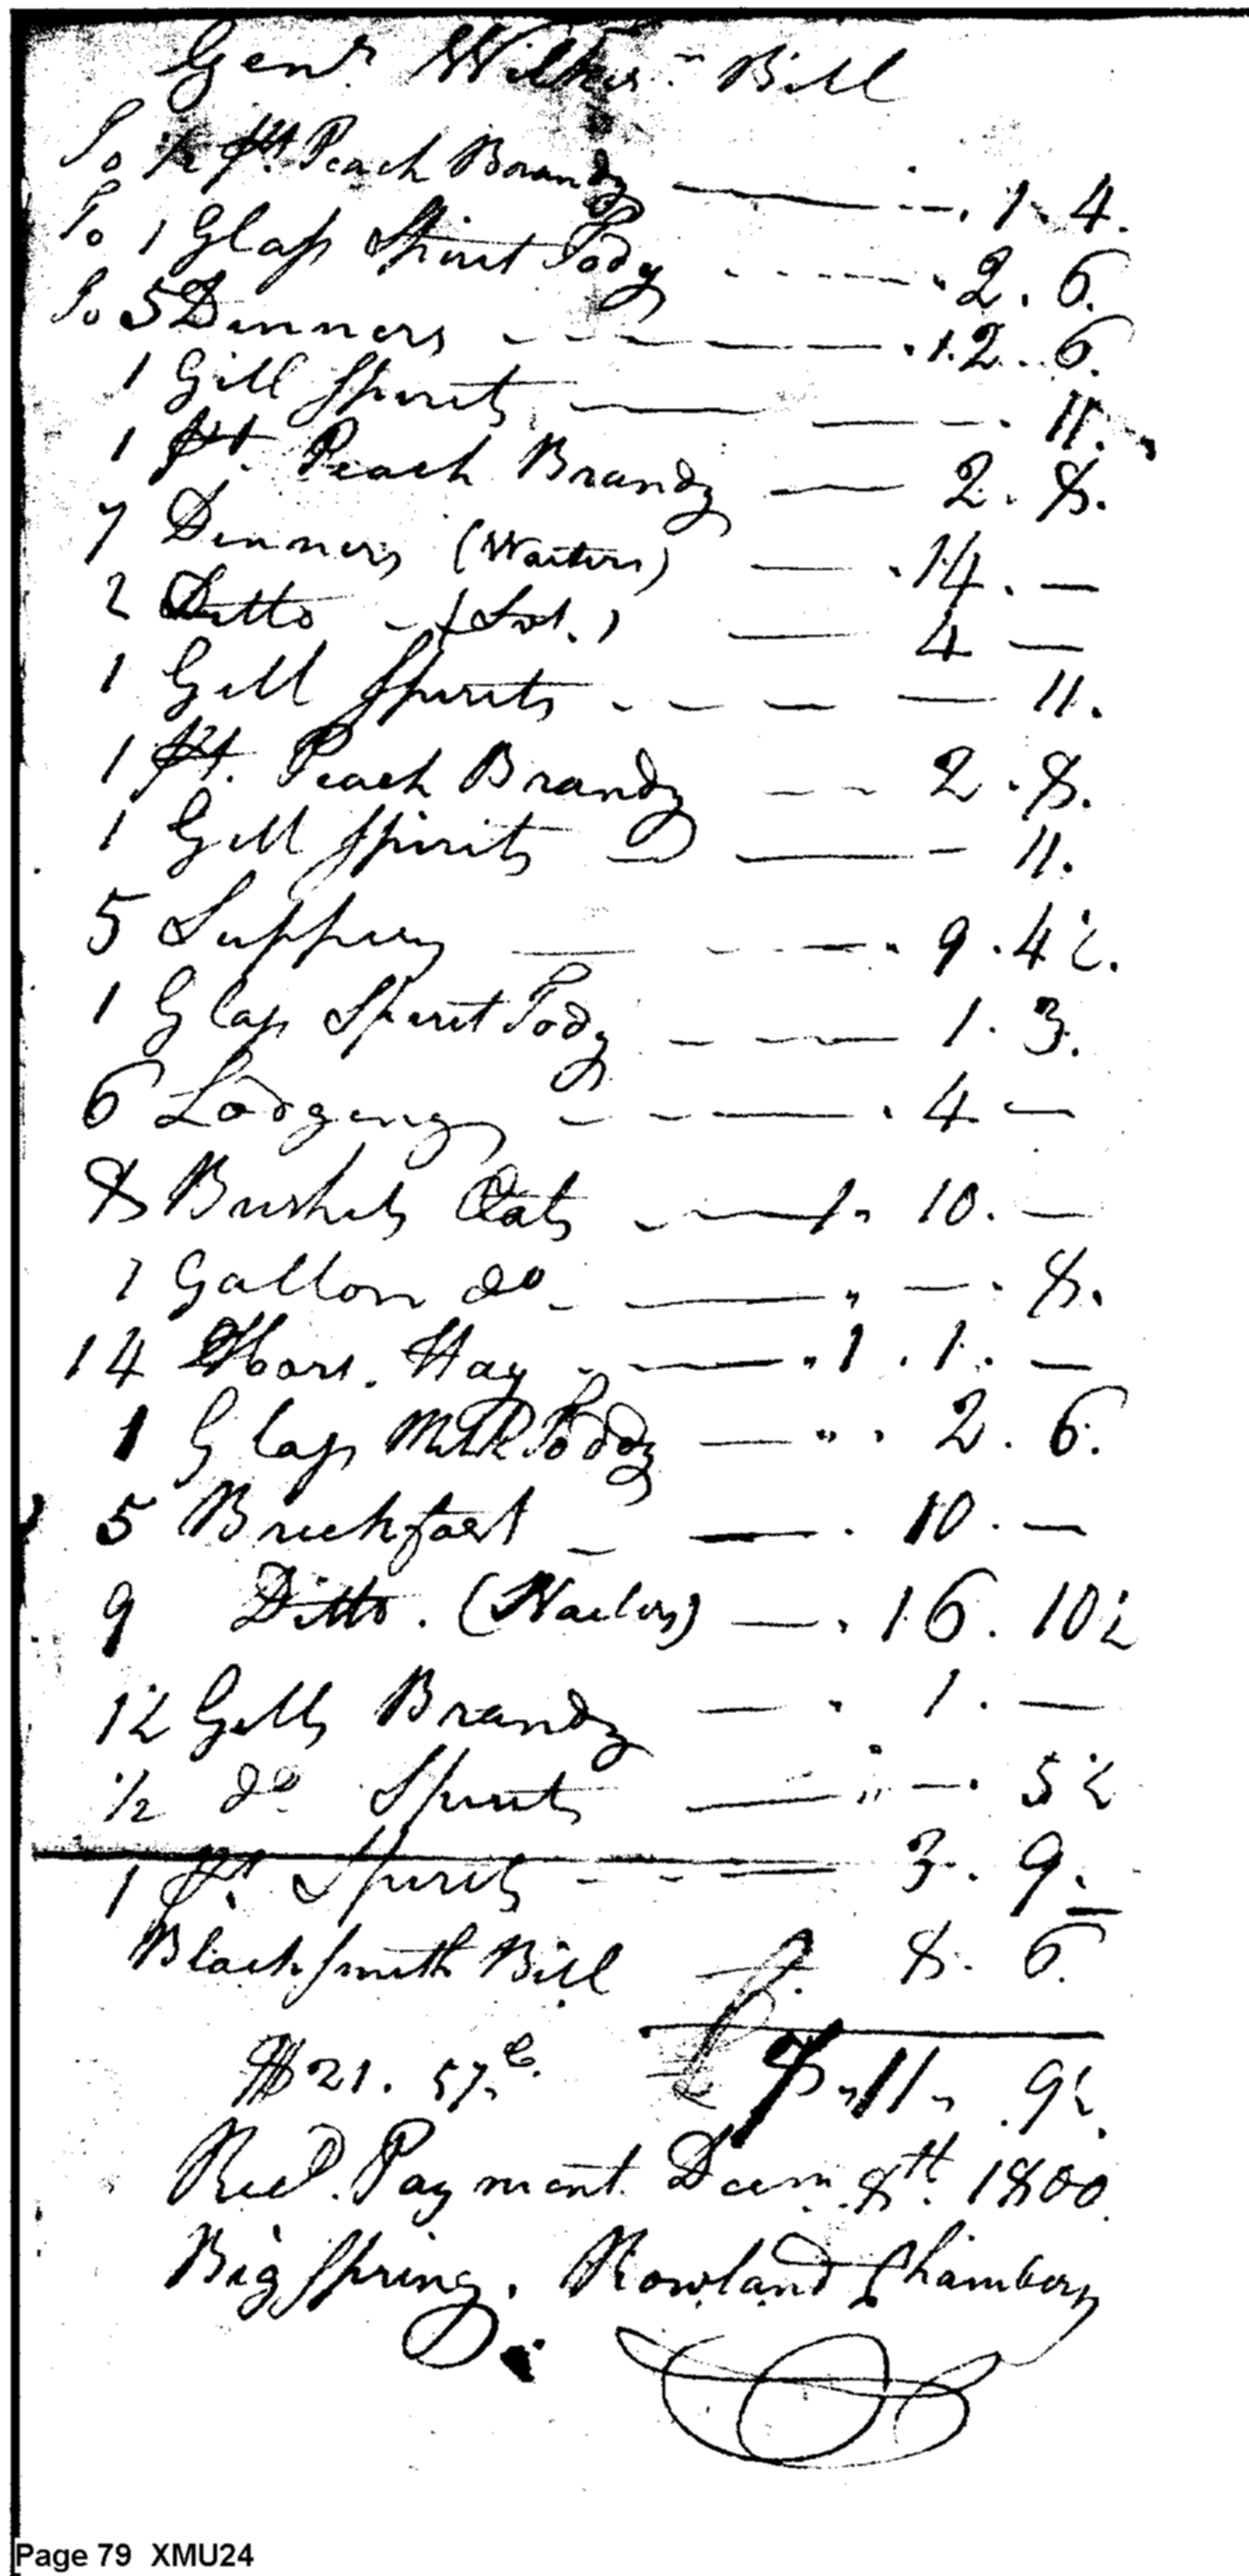 Genl Wilkinsn Bill
To ½ pt. Peach Brandy — 1. 4.
To 1 Glass Spirit Tody — 2. 6.
To 5 Dinners — 12. 6.
1 Gill Spirits — 11.
1 pt. Peach Brandy — 2. 8.
7 Dinners (Waiters) — 14. —
2 Ditto - ( ) — 4 —
1 Gill Spirits — 11.
1 pt. Peach Brandy — 2. 8.
1 Gill Spirits — 11.
5 Suppers — 9. 4½.
1 Glass Spirit Tody — 1. 3.
6 Lodgings — 4 —
8 Bushels Oats — 1. 10. —
1 Gallon do — 8.
14 Hors. Hay — 1. 1. —
1 Glass Milk Toddy — 2. 6.
5 Breckfast — 10. —
9 Ditto. (Waiters) — 16. 10½
1½ Gills Brandy — 1. —
½ do. Spirits — 5½
1 pt. Spirits — 3. 9.
Blacksmith Bill — 8. 6.
$21. 57.C. £ 7 „ 11 „ 9½.
Recd. Payment Decem. 8th. 1800.
Big Spring. Rowland Chambers
Page 79 XMU24